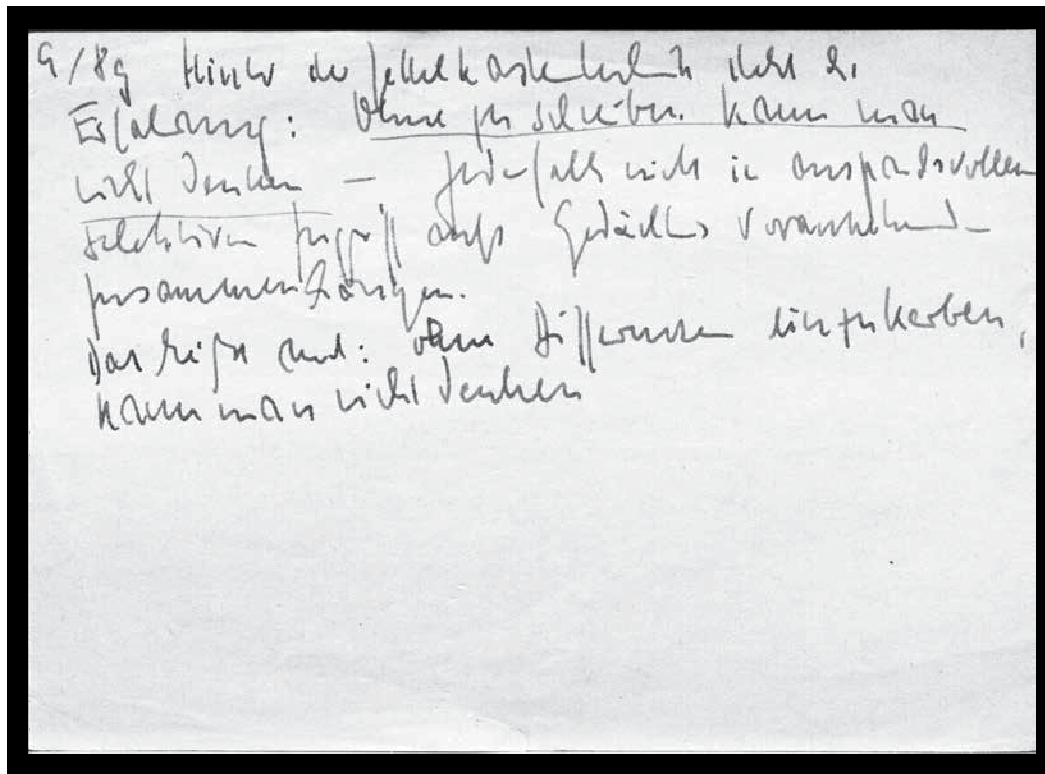 9/8g Hinter der Zettelkastentechnik steht die
Erfahrung: Ohne zu schreiben kann man
nicht denken – jedenfalls nicht in anspruchsvollen
selektiven Zugriff aufs Gedächtnis voraussehenden
zusammenhängen.
Das heißt auch: ohne Differenzen einzukerben,
kann man nicht denken